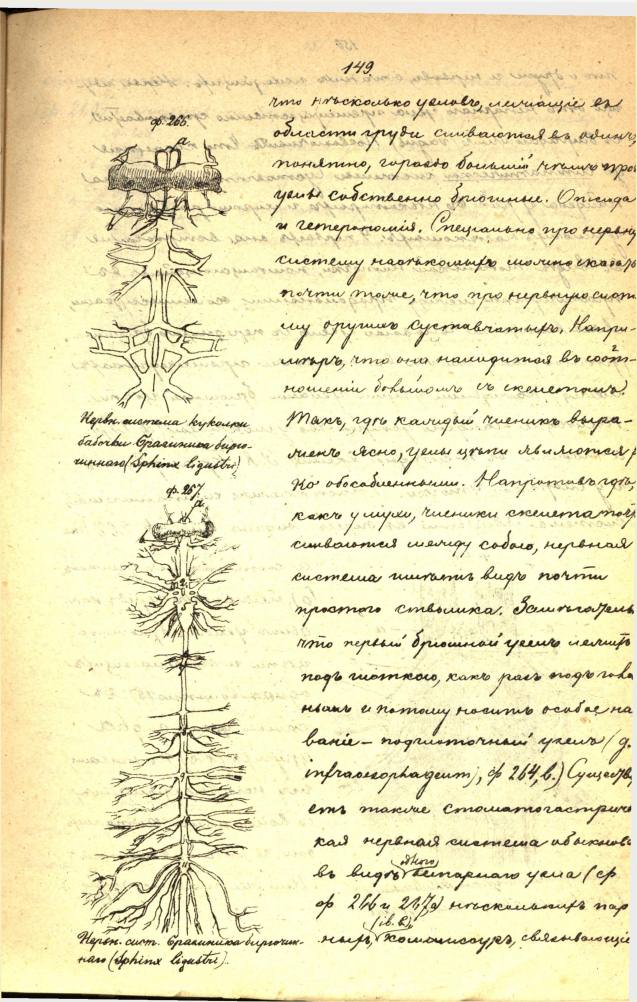 149
что нѣсколько узловъ, лежащiе въ
области груди сливаются въ одинъ,
понятно, гораздо большiй чѣмъ про
узлы собственно брюшные. Отсюда
и гетерономiя. Спецiально про нервну
систему насѣкомыхъ можно сказать
почти тоже, что про нервную сист
му другихъ суставчатыхъ. Напри-
мѣръ, что она находится въ соот-
ношенiи бо́льшомъ съ скелетомъ.
Такъ, гдѣ каждый членикъ выра-
женъ ясно, узлы цѣпи являются р
ко обособленными. Напротивъ гдѣ,
какъ у мухи, членики скелета
сливаются между собою, нервная
система имѣетъ видъ почти
простого стволика. Замѣчатель
что первый брюшной узелъ лежитъ
подъ глоткою, какъ разъ подъ голо
нымъ и потому носитъ особое на
ванiе – подглоточный узелъ (g.
infraoesophageum), ф 264, в.) Существу
етъ также стоматогастриче
кая нервная система обыкнов
въ видѣ одного непарнаго узла (ср
ф 266 и 267а) нѣсколькихъ пар
ныхъ (ів. в) коммиссуръ, связывающiе
ф. 266.
а.
Нервн. система куколки
бабочки бражника бирю-
чиннаго (Sphinx ligustri).
ф. 267.
а.
Нервн. сист. бражника бирючин-
наго (Sphinx ligustri).